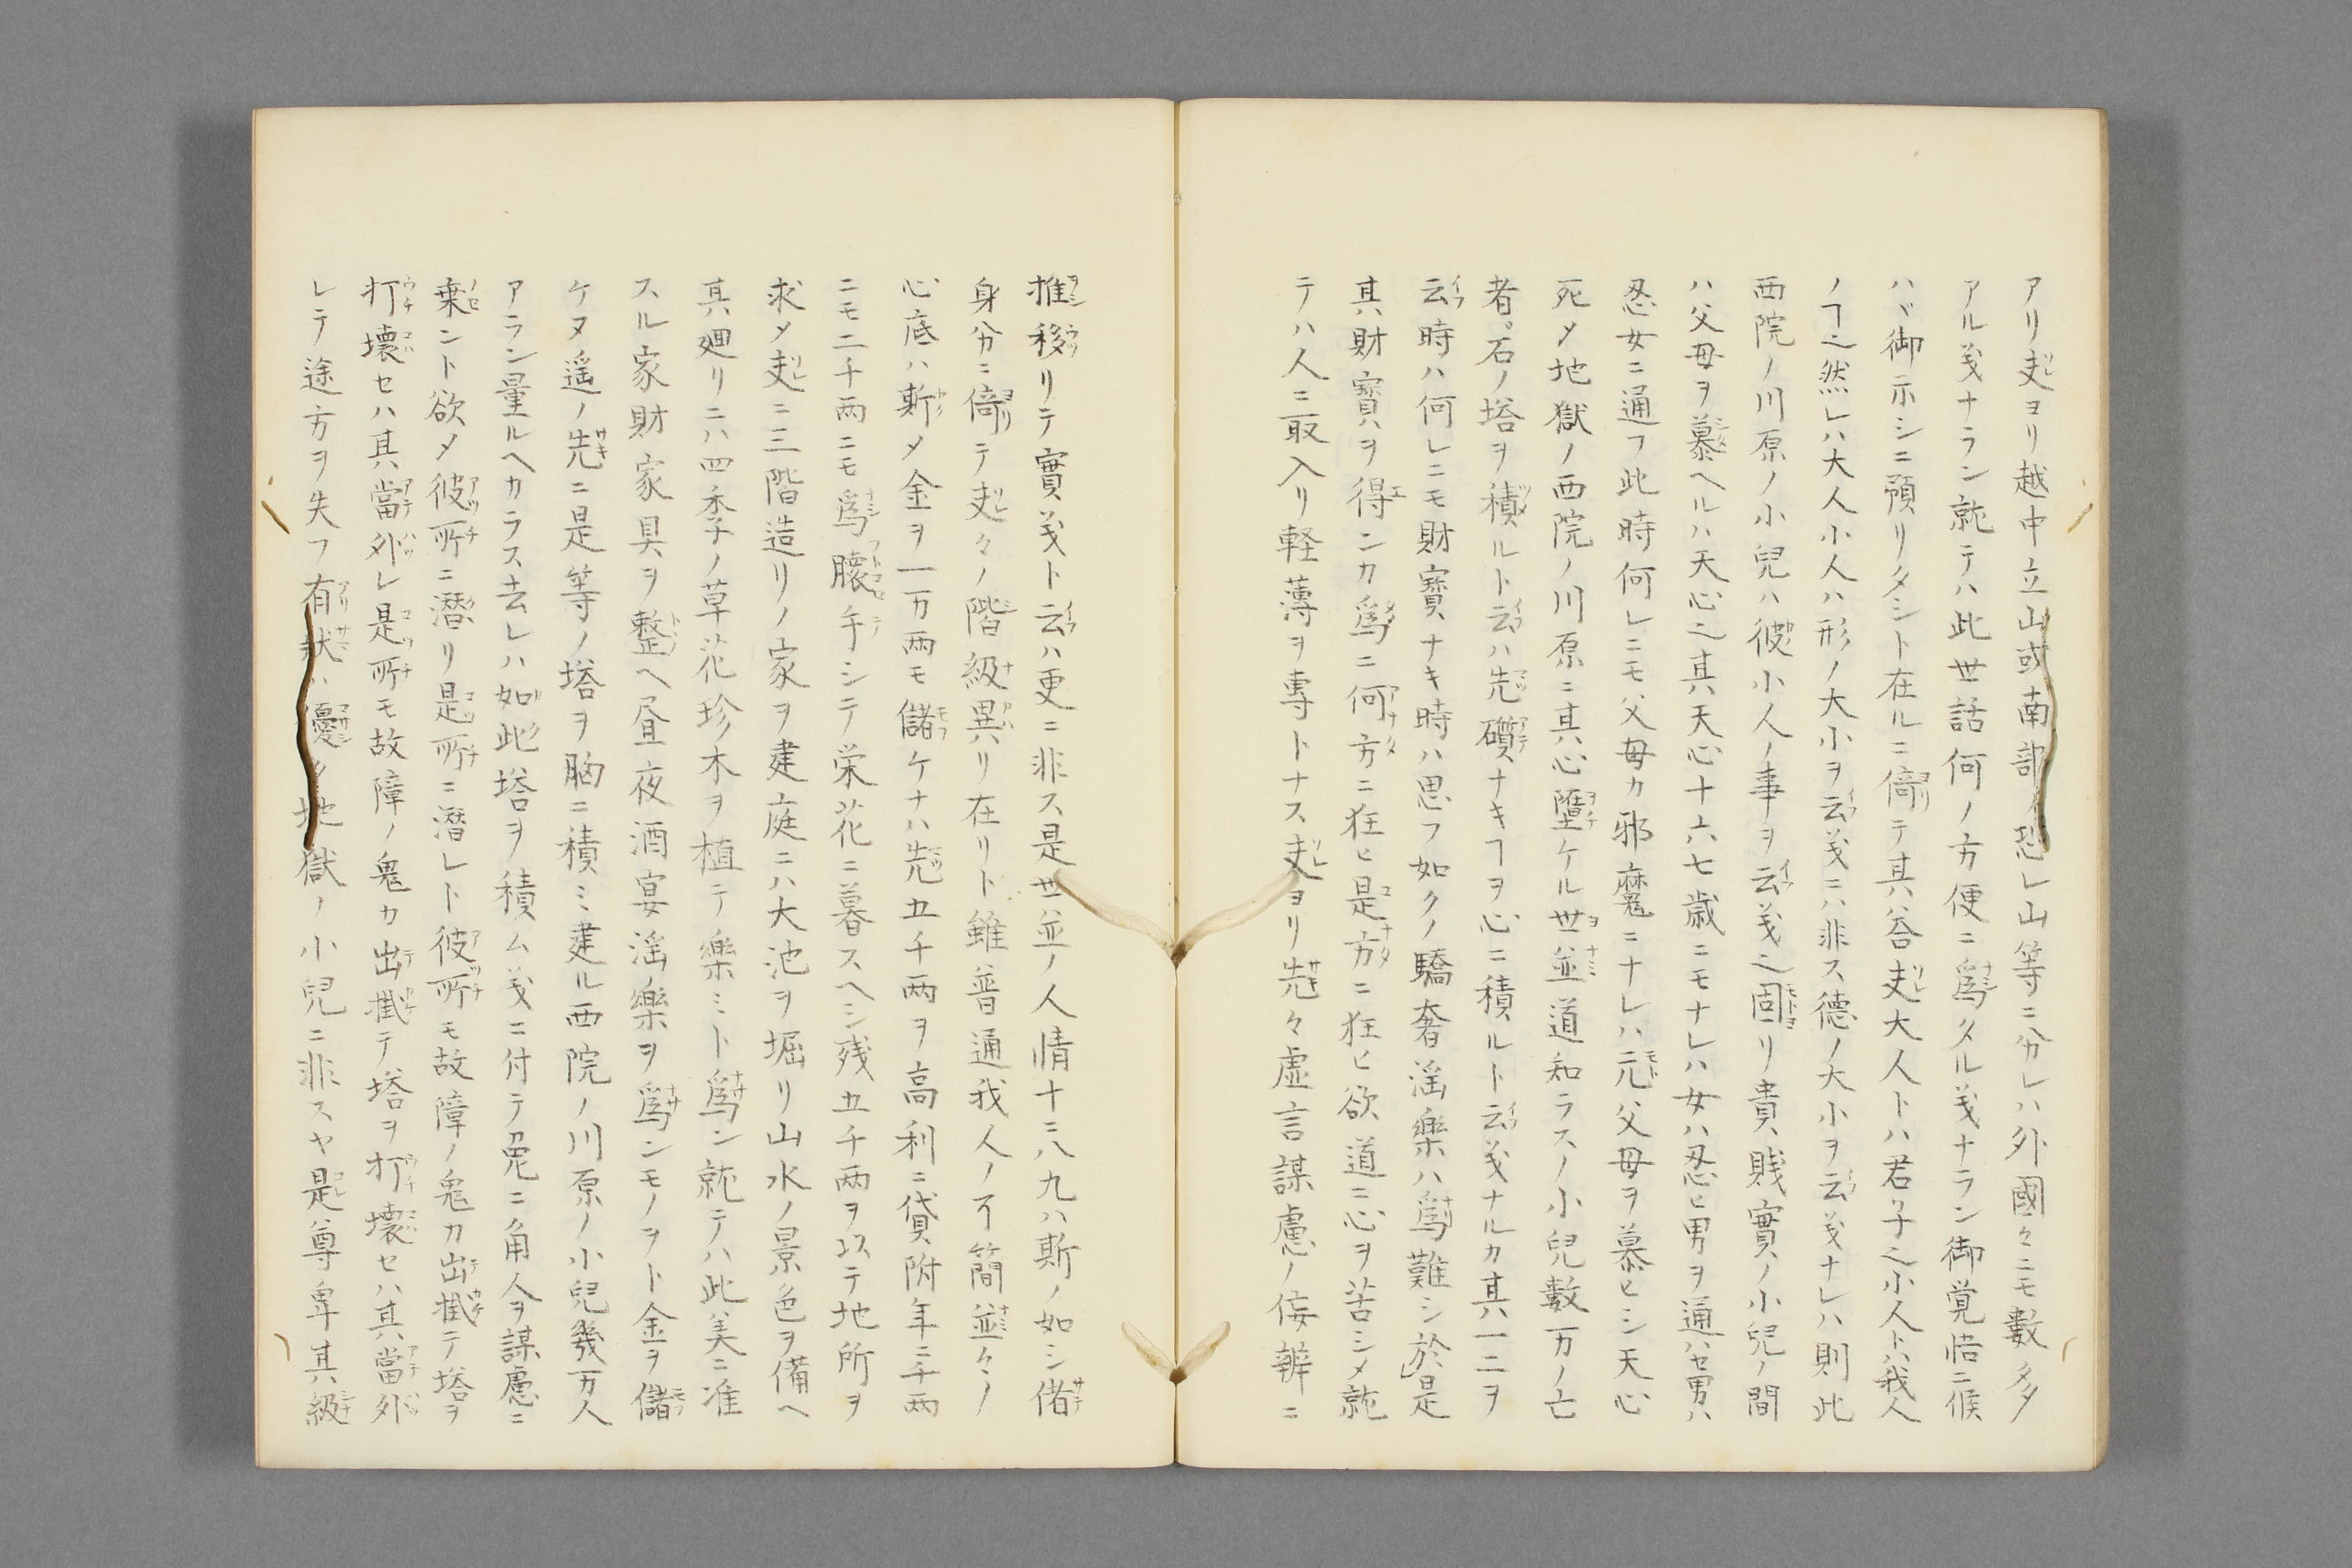 アリ夫ヨリ越中立山或南部ノ恐レ山等ニ分レハ外國々ニモ數多
アル義ナラン就テハ此世話何ノ方便ニ爲タル義ナラン御覚悟ニ候
ハヾ御示シニ預リタシト在ルニ偖テ其答夫大人トハ君子也小人トハ我人
ノヿ也然レハ大人小人ハ形ノ大小ヲ云義ニハ非ス德ノ大小ヲ云義ナレハ則此
西院ノ川原ノ小兒ハ彼小人ノ事ヲ云義也固リ貴賤實ノ小兒ノ間
ハ父母ヲ慕ヘルハ天心也其天心十六七歳ニモナレハ女ハ忍ヒ男ヲ通ハセ男ハ
忍女ニ通フ此時何レニモ父母カ邪魔ニナレハ元父母ヲ慕ヒシ天心
死メ地獄ノ西院ノ川原ニ其心墮ケル世並道知ラスノ小兒數万ノ亡
者石ノ塔ヲ積ルト云ハ先礩ナキヿヲ心ニ積ルト云義ナルカ其一二ヲ
云時ハ何レニモ財寳ナキ時ハ思フ如クノ驕奢滛樂ハ爲難シ於是
其財寳ヲ得ンカ爲ニ何方ニ狂ヒ是方ニ狂ヒ欲道ニ心ヲ苦シメ就
テハ人ニ取入リ軽薄ヲ専トナス夫ヨリ先々虚言謀慮ノ侫辨ニ
推移リテ實義ト云ハ更ニ非ス是世並ノ人情十ニ八九ハ斯ノ如シ偖
身分ニ偖テ夫々ノ階級異リ在リト雖普通我人ノ不簡並々ノ
心底ハ斯メ金ヲ一万兩モ儲ケナハ先五千两ヲ高利ニ貸附年ニ千两
ニモ二千两ニモ爲懷手シテ栄花ニ暮スヘシ残五千两ヲ以テ地所ヲ
求メ夫ニ三階造リノ家ヲ建庭ニハ大池ヲ堀リ山水ノ景色ヲ備ヘ
其廻リニハ四季ノ草花珍木ヲ植テ樂ミト爲ン就テハ此美ニ准
スル家財家具ヲ整ヘ昼夜酒宴滛樂ヲ爲ンモノヲト金ヲ儲
ケヌ遥ノ先ニ是等ノ塔ヲ胸ニ積ミ建ル西院ノ川原ノ小兒幾万人
アラン量ルヘカラス去レハ如此塔ヲ積ム義ニ付テ兎ニ角人ヲ謀慮ニ
乗ント欲メ彼所ニ潜リ是所ニ潜レト彼所モ故障ノ鬼カ出掛テ塔ヲ
打壊セハ其當外レ是所モ故障ノ鬼カ出掛テ塔ヲ打壊セハ其當外
レテ途方ヲ失フ有狀ハ憂々地獄ノ小兒ニ非スヤ是尊卑其級